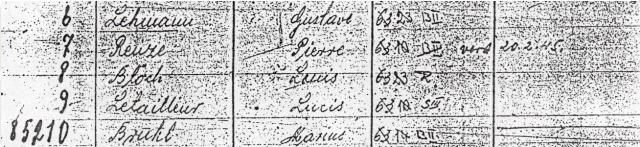 6 Lehmann Gustave 6323 BII
7 Renze Pierre 6310 BII vers 20.2.45.
8 Bloch Louis 6323 R
9 Letailleur Lucis 6310 SII
85210 Bruhl Hanus 6314 BII